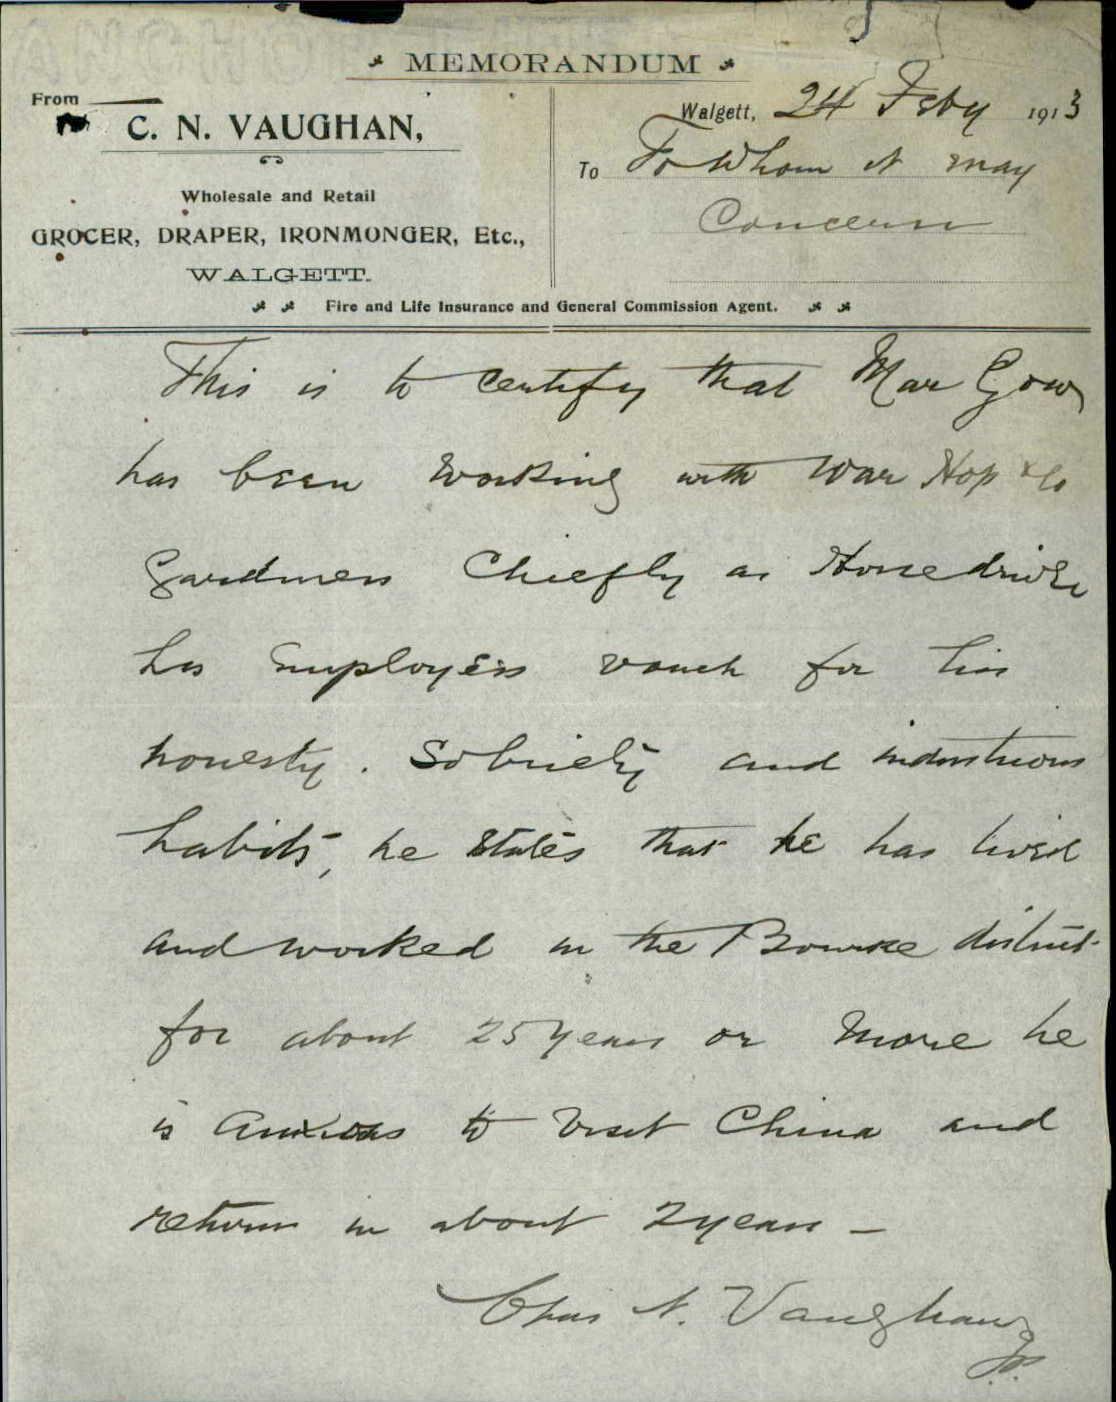 MEMORANDUM
From
C. N. VAUGHAN,
Wholesale and Retail
GROCER, DRAPER, IRONMONGER, Etc.,
WALGETT.
Walgett, 24 Feby 1913
To To Whom it may
Concern
Fire and Life Insurance and General Commission Agent.
This is to certify that Mar Gow
has been working with War Hop & Co
Gardners Chiefly as Horsedriver
his Employers vouch for his
honesty. Sobriety and industrious
habits, he states that he has lived
and worked in the Bourke district
for about 25 years or more he
is anxious to visit China and
return in about 2 years –
Chas N. Vaughan
J.P.